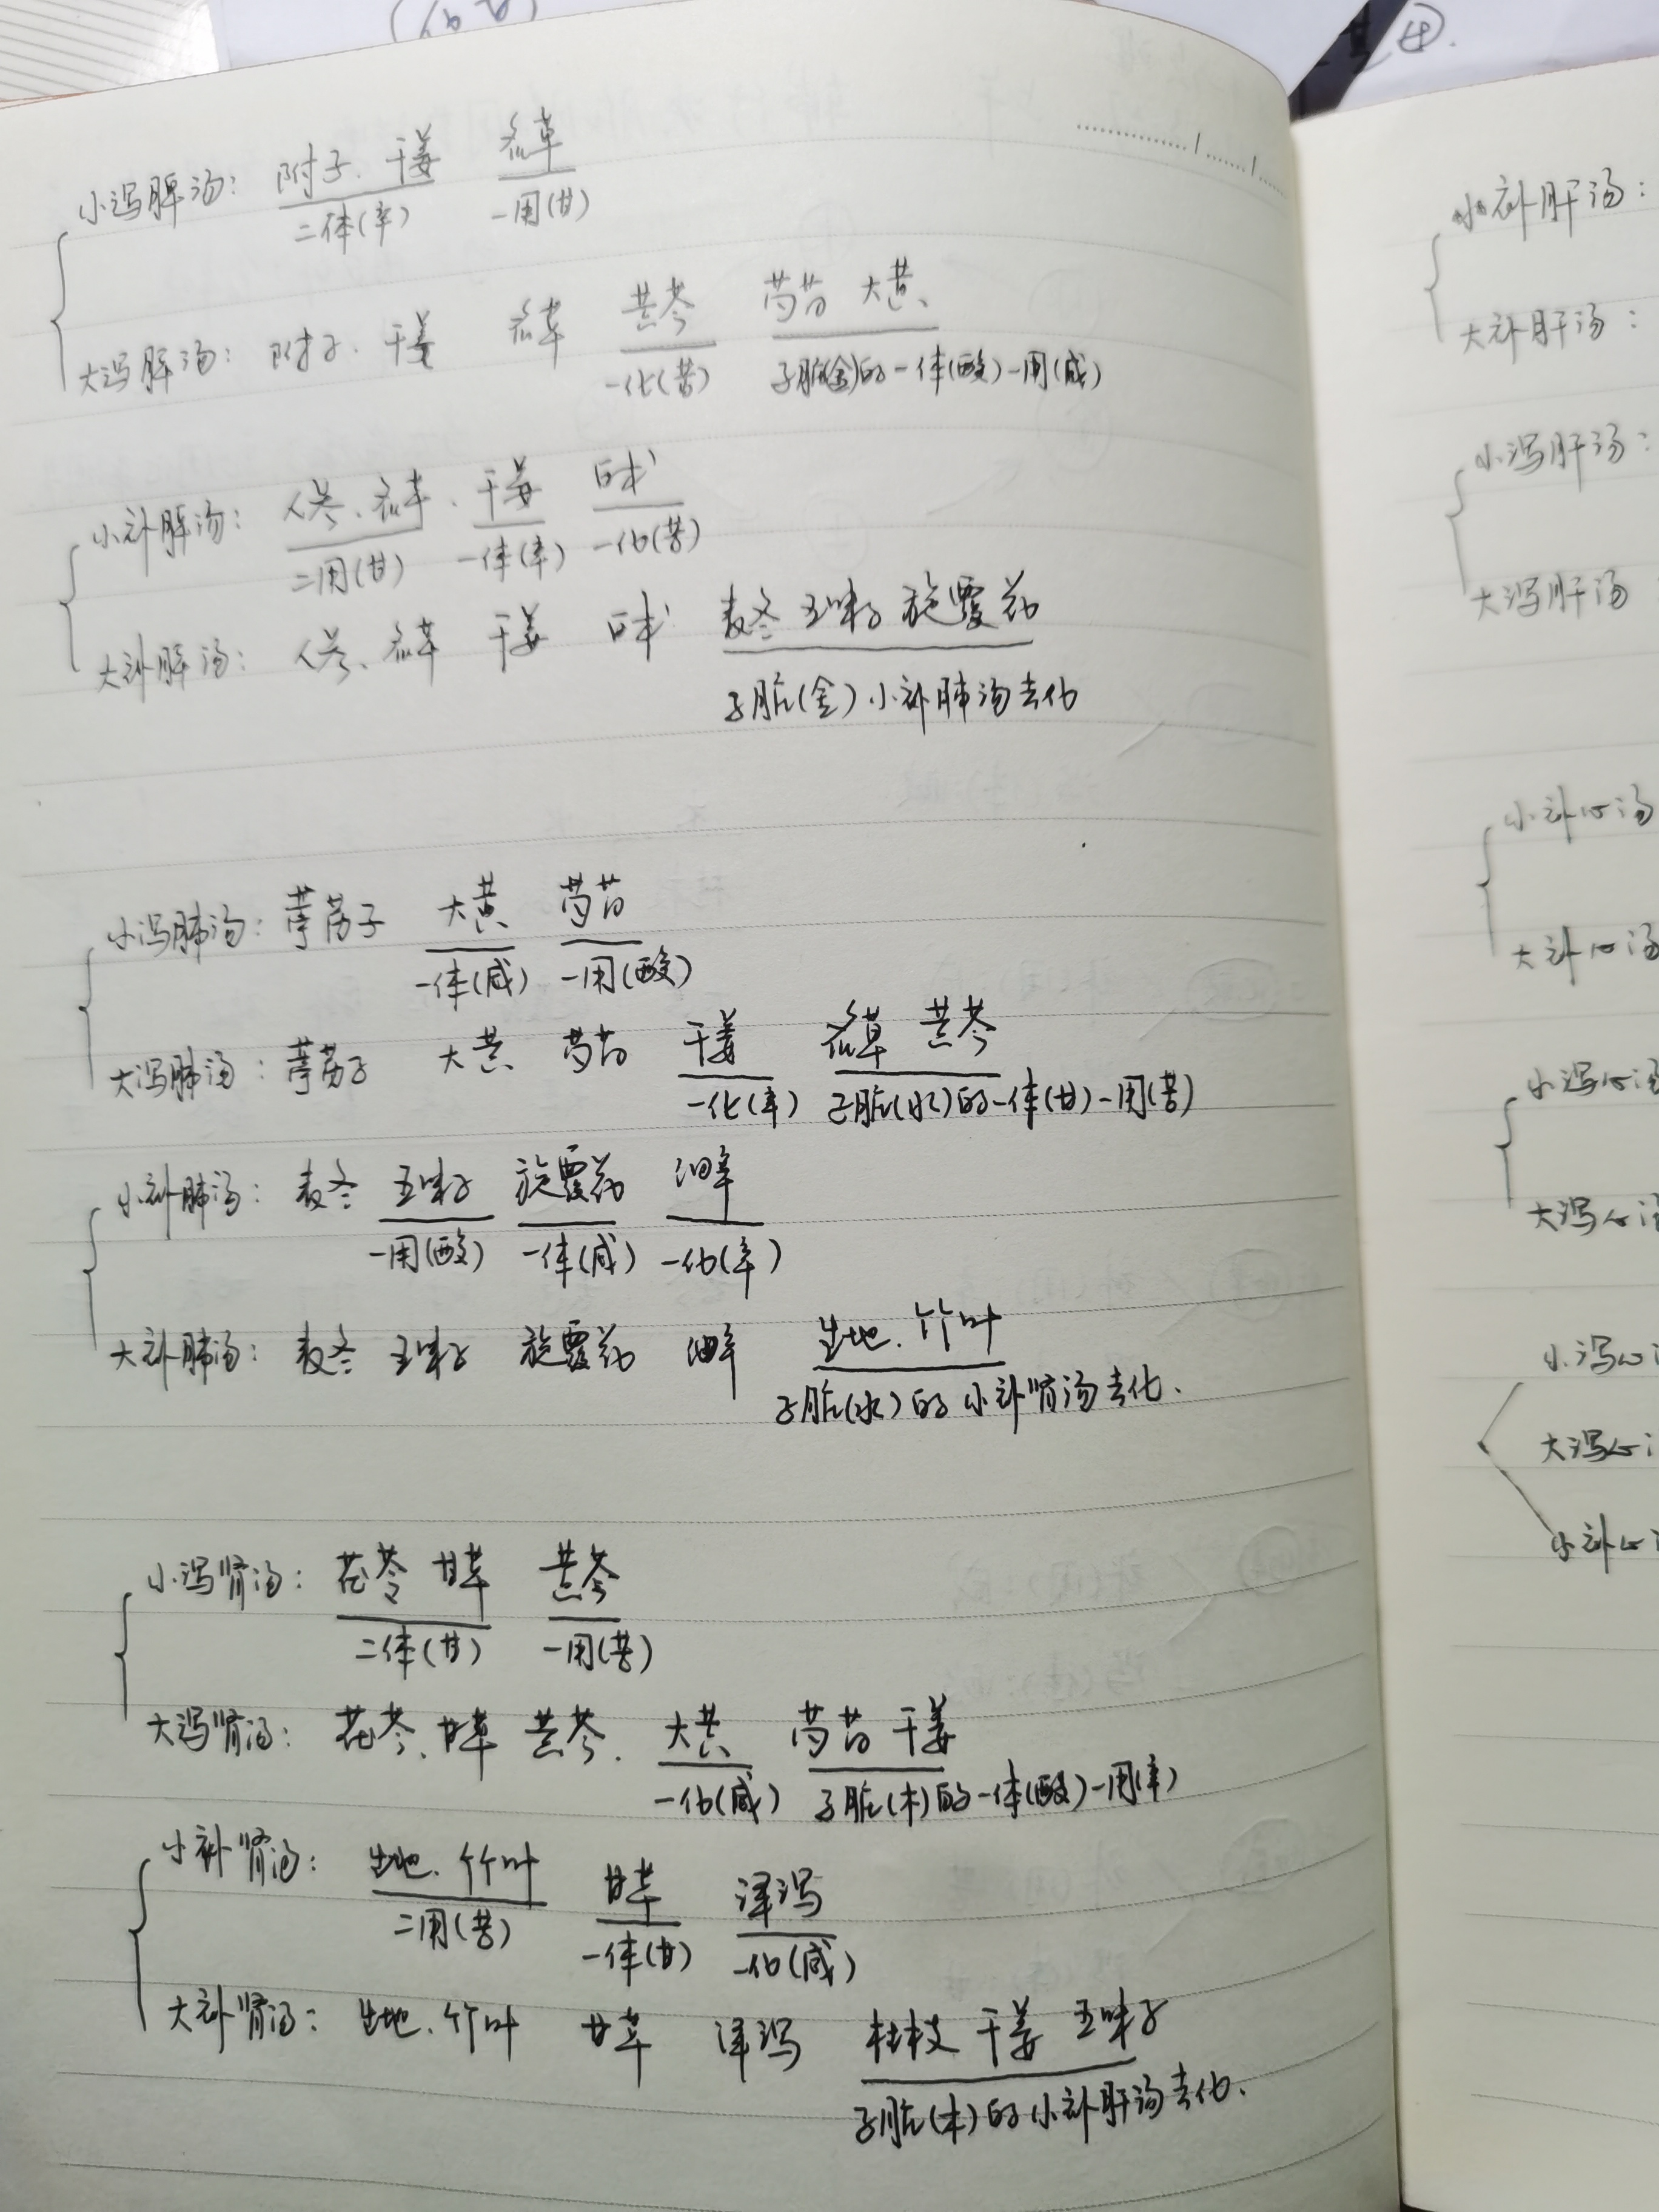 小泻脾汤：附子、干姜 炙草
二体(辛) 一用(甘)
大泻脾汤：附子、干姜 炙草 黄芩 芍药 大黄
一化(苦) 子脏(金)的一体(酸)一用(咸)
小补脾汤：人参、炙草、干姜 白术
二用(甘) 一体(辛) 一化(苦)
大补脾汤：人参、炙草 干姜 白术 麦冬 五味子 旋覆花
子脏(金)小补肺汤去化
小泻肺汤：葶苈子 大黄 芍药
一体(咸) 一用(酸)
大泻肺汤：葶苈子 大黄 芍药 干姜 炙草 黄芩
一化(辛) 子脏(水)的一体(甘)一用(苦)
小补肺汤：麦冬 五味子 旋覆花 细辛
一用(酸) 一体(咸) 一化(辛)
大补肺汤：麦冬 五味子 旋覆花 细辛 生地、竹叶
子脏(水)的小补肾汤去化、
小泻肾汤：茯苓 甘草 黄芩
二体(甘) 一用(苦)
大泻肾汤：茯苓、甘草 黄芩、大黄 芍药 干姜
一化(咸) 子脏(木)的一体(酸)一用(辛)
小补肾汤：生地、竹叶 甘草 泽泻
二用(苦) 一体(甘) 一化(咸)
大补肾汤：生地、竹叶 甘草 泽泻 桂枝 干姜 五味子
子脏(木)的小补肝汤去化、
小补肝汤：
大补肝汤：
小泻肝汤：
大泻肝汤
小补心汤
大补心汤
小泻心汤
大泻心汤
小泻心
大泻心
小补心